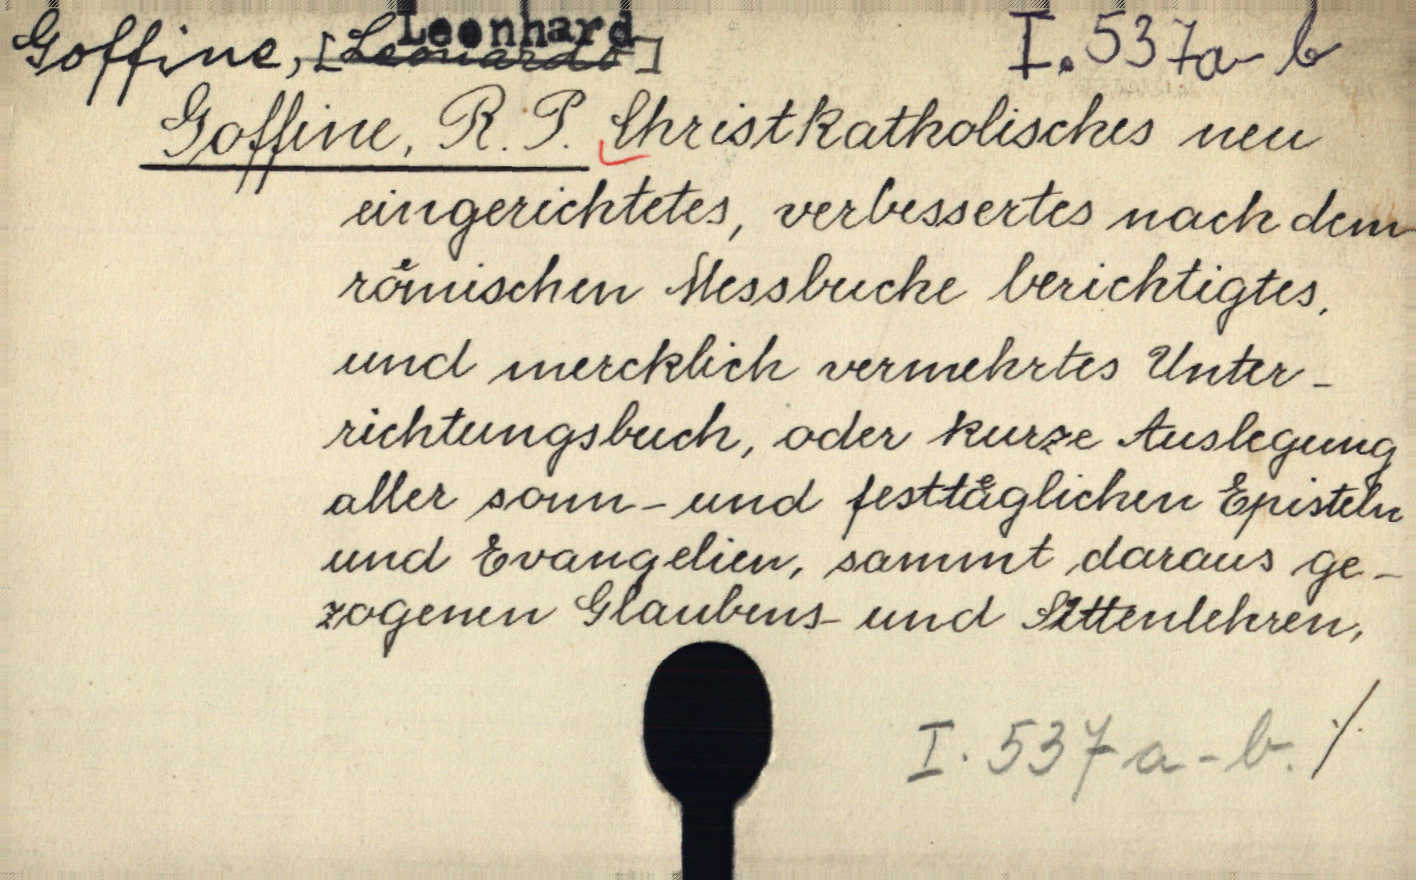 Leonhard
Goffine, [Leonardo] I. 537a-b
Goffine, R. P. Christkatholisches neu
eingerichtetes, verbessertes nach dem
römischen Messbuche berichtigtes,
und mercklich vermehrtes Unter-
richtungsbuch, oder kurze Auslegung
aller sonn- und festtäglichen Episteln
und Evangelien, sammt daraus ge-
zogenen Glaubens- und Sittenlehren,
I. 537 a-b. ./.